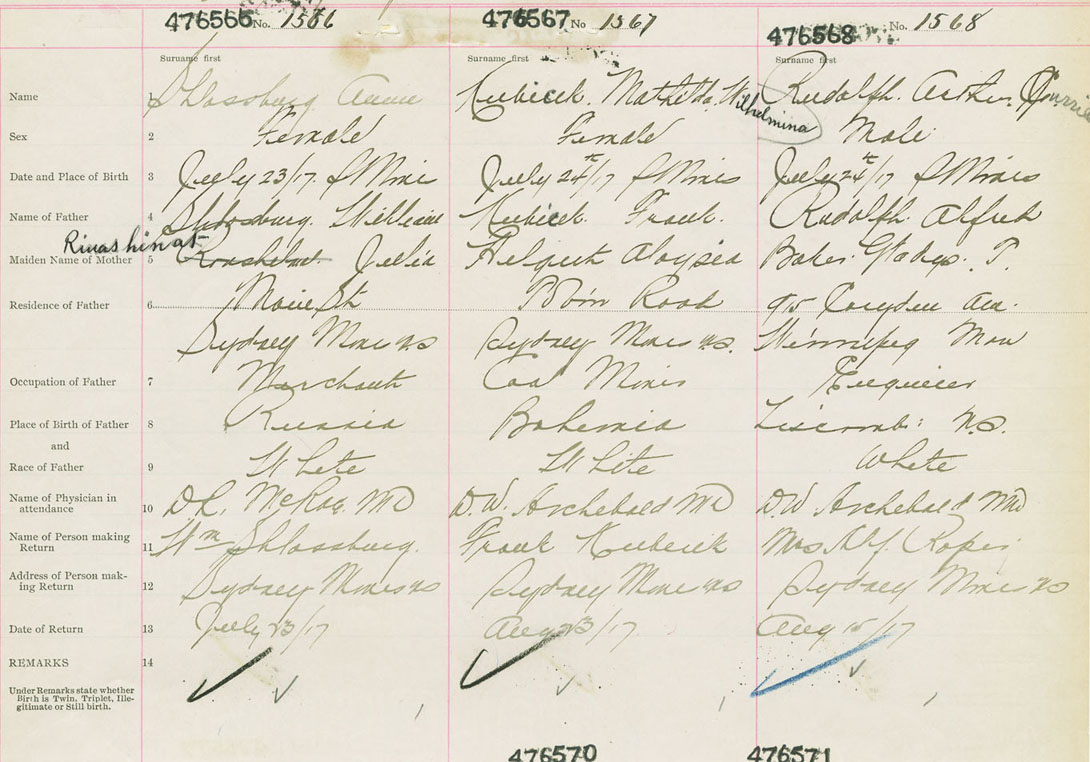 476566 No. 1566 476567 No 1567 476568 No. 1568
Surname first Surname first Surname first
Name 1 Shlossburg Annie Kubicek. Mathilda, Wilhelmina Rudolph. Arthur, Currie
Sex 2 Female Female Male
Date and Place of Birth 3 July 23/17. S Mines July 24th/17 S Mines July 24th/17 S Mines
Name of Father 4 Shlosburg. William Kubicek Frank. Rudolph. Alfred
Rinashinat
Maiden Name of Mother 5 Julia Aloysia Baker. Gladys. P.
Residence of Father 6 Main St Road 95 Corydon Ave.
Sydney Mines NS Sydney Mines NS. Winnipeg Man
Occupation of Father 7 Merchant Coal Miner Engineer
Place of Birth of Father 8 Russia Bohemia Liscomb: N.S.
and
Race of Father 9 White White White
Name of Physician in
attendance 10 McRae, MD D.W. Archebald MD D.W Archebald MD
Name of Person making
Return 11 Wm Shlossburg. Frank Kubicek Mrs Alf. Roper
Address of Person mak-
ing Return 12 Sydney Mines NS Sydney Mines NS Sydney Mines NS
Date of Return 13 July 23/17 Aug 23/17 Aug 15/17
REMARKS 14
Under Remarks state whether
Birth is Twin, Triplet, Ille-
gitimate or Still birth.
476570 476571